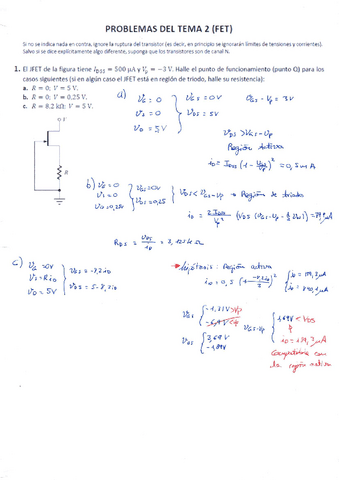 PROBLEMAS DEL TEMA 2 (FET)
Si no se indica nada en contra, ignore la ruptura del transistor (es decir, en principio se ignorarán límites de tensiones y corrientes).
Salvo si se dice explícitamente algo diferente, suponga que los transistores son de canal N.
1. El JFET de la figura tiene I_DSS = 500 μA y V_p = −3 V. Halle el punto de funcionamiento (punto Q) para los
casos siguientes (si en algún caso el JFET está en región de triodo, halle su resistencia):
a. R = 0; V = 5 V.
b. R = 0; V = 0,25 V.
c. R = 8.2 kΩ; V = 5 V.
V
R
a) V_G = 0
V_S = 0
V_D = 5V
V_GS = 0V
V_DS = 5V
V_GS - V_p = 3V
V_DS > V_GS - V_p
Región activa
i_D = I_DSS (1 - V_GS/V_p)^2 = 0,5 mA
b) V_G = 0
V_S = 0
V_D = 0,25
V_GS = 0V
V_DS = 0,25
V_DS < V_GS - V_p → Región de triodo
i_D = 2 I_DSS/V_p^2 (V_DS (V_GS - V_p - 1/2 V_DS))
R_DS = V_DS/i_D =
c) V_G = 0V
V_S = R i_D
V_D = 5V
V_GS = -8,2 i_D
V_DS = 5 - 8,2 i_D
Hipótesis: Región activa
V_GS
V_DS
V_GS - V_p
1,69V < V_DS
Compatible con
la región activa